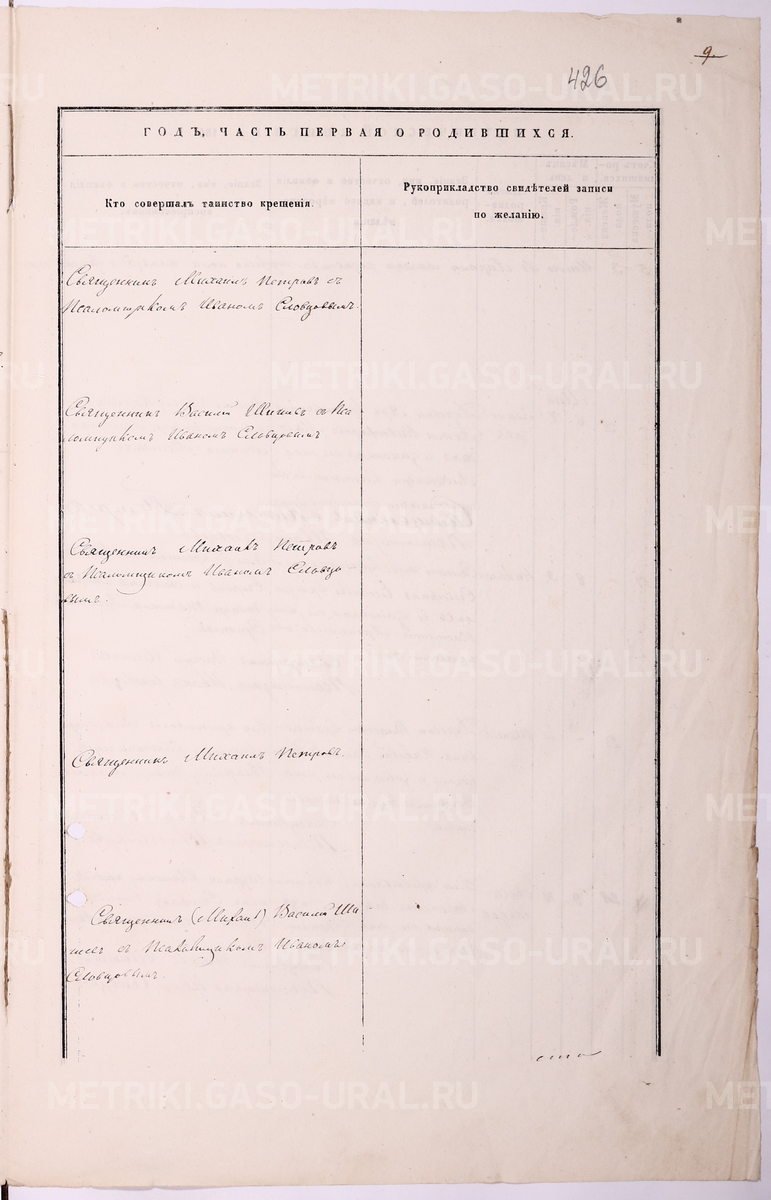 9.
426
ГОДЪ, ЧАСТЬ ПЕРВАЯ О РОДИВШИХСЯ.
Кто совершалъ таинство крещенія.
Рукоприкладство свидѣтелей записи
по желанію.
Священникъ Михаилъ Петровъ съ
Псаломщикомъ Иваномъ Словцовымъ.
Священникъ Василій съ Пса
ломщикомъ Иваномъ Словцовымъ
Священникъ Михаилъ Петровъ
съ Псаломщикомъ Иваномъ Словцо-
вымъ.
Священникъ Михаилъ Петровъ.
Священникъ (Михаил) Василій
съ Псаломщикомъ Иваномъ
Словцовымъ.
METRIKI.GASO-URAL.RU